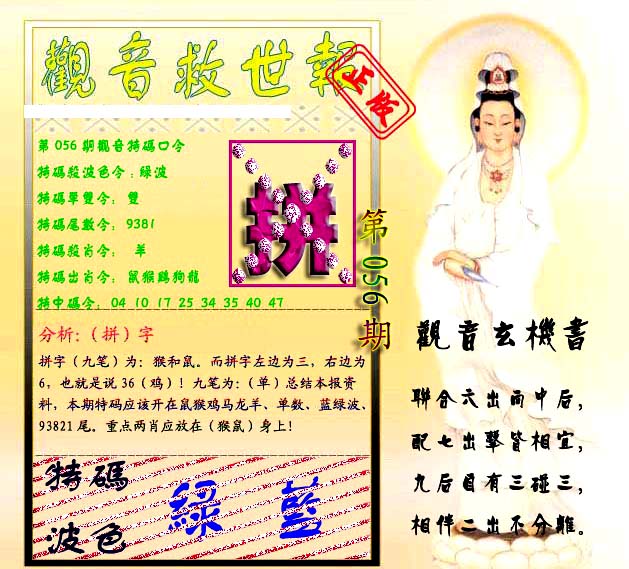 觀音救世報
正版
第 056 期觀音特碼口令
特碼殺波色令:綠波
特碼單雙令: 雙
特碼尾數令: 9381
特碼殺肖令: 羊
特碼出肖令: 鼠猴鷄狗龍
特中碼令: 04 10 17 25 34 35 40 47
拼
第 056 期
分析:（拼）字
拼字（九笔）为：猴和鼠。而拼字左边为三，右边为
6，也就是说 36（鸡）！九笔为:（单）总结本报资
料，本期特码应该开在鼠猴鸡马龙羊、单数、蓝绿波、
93821 尾。重点两肖应放在（猴鼠）身上！
特碼
波色
綠 藍
觀音玄機書
聯合六出而中后，
配七出擊皆相宜，
九后目有三碰三，
相伴二出不分離。